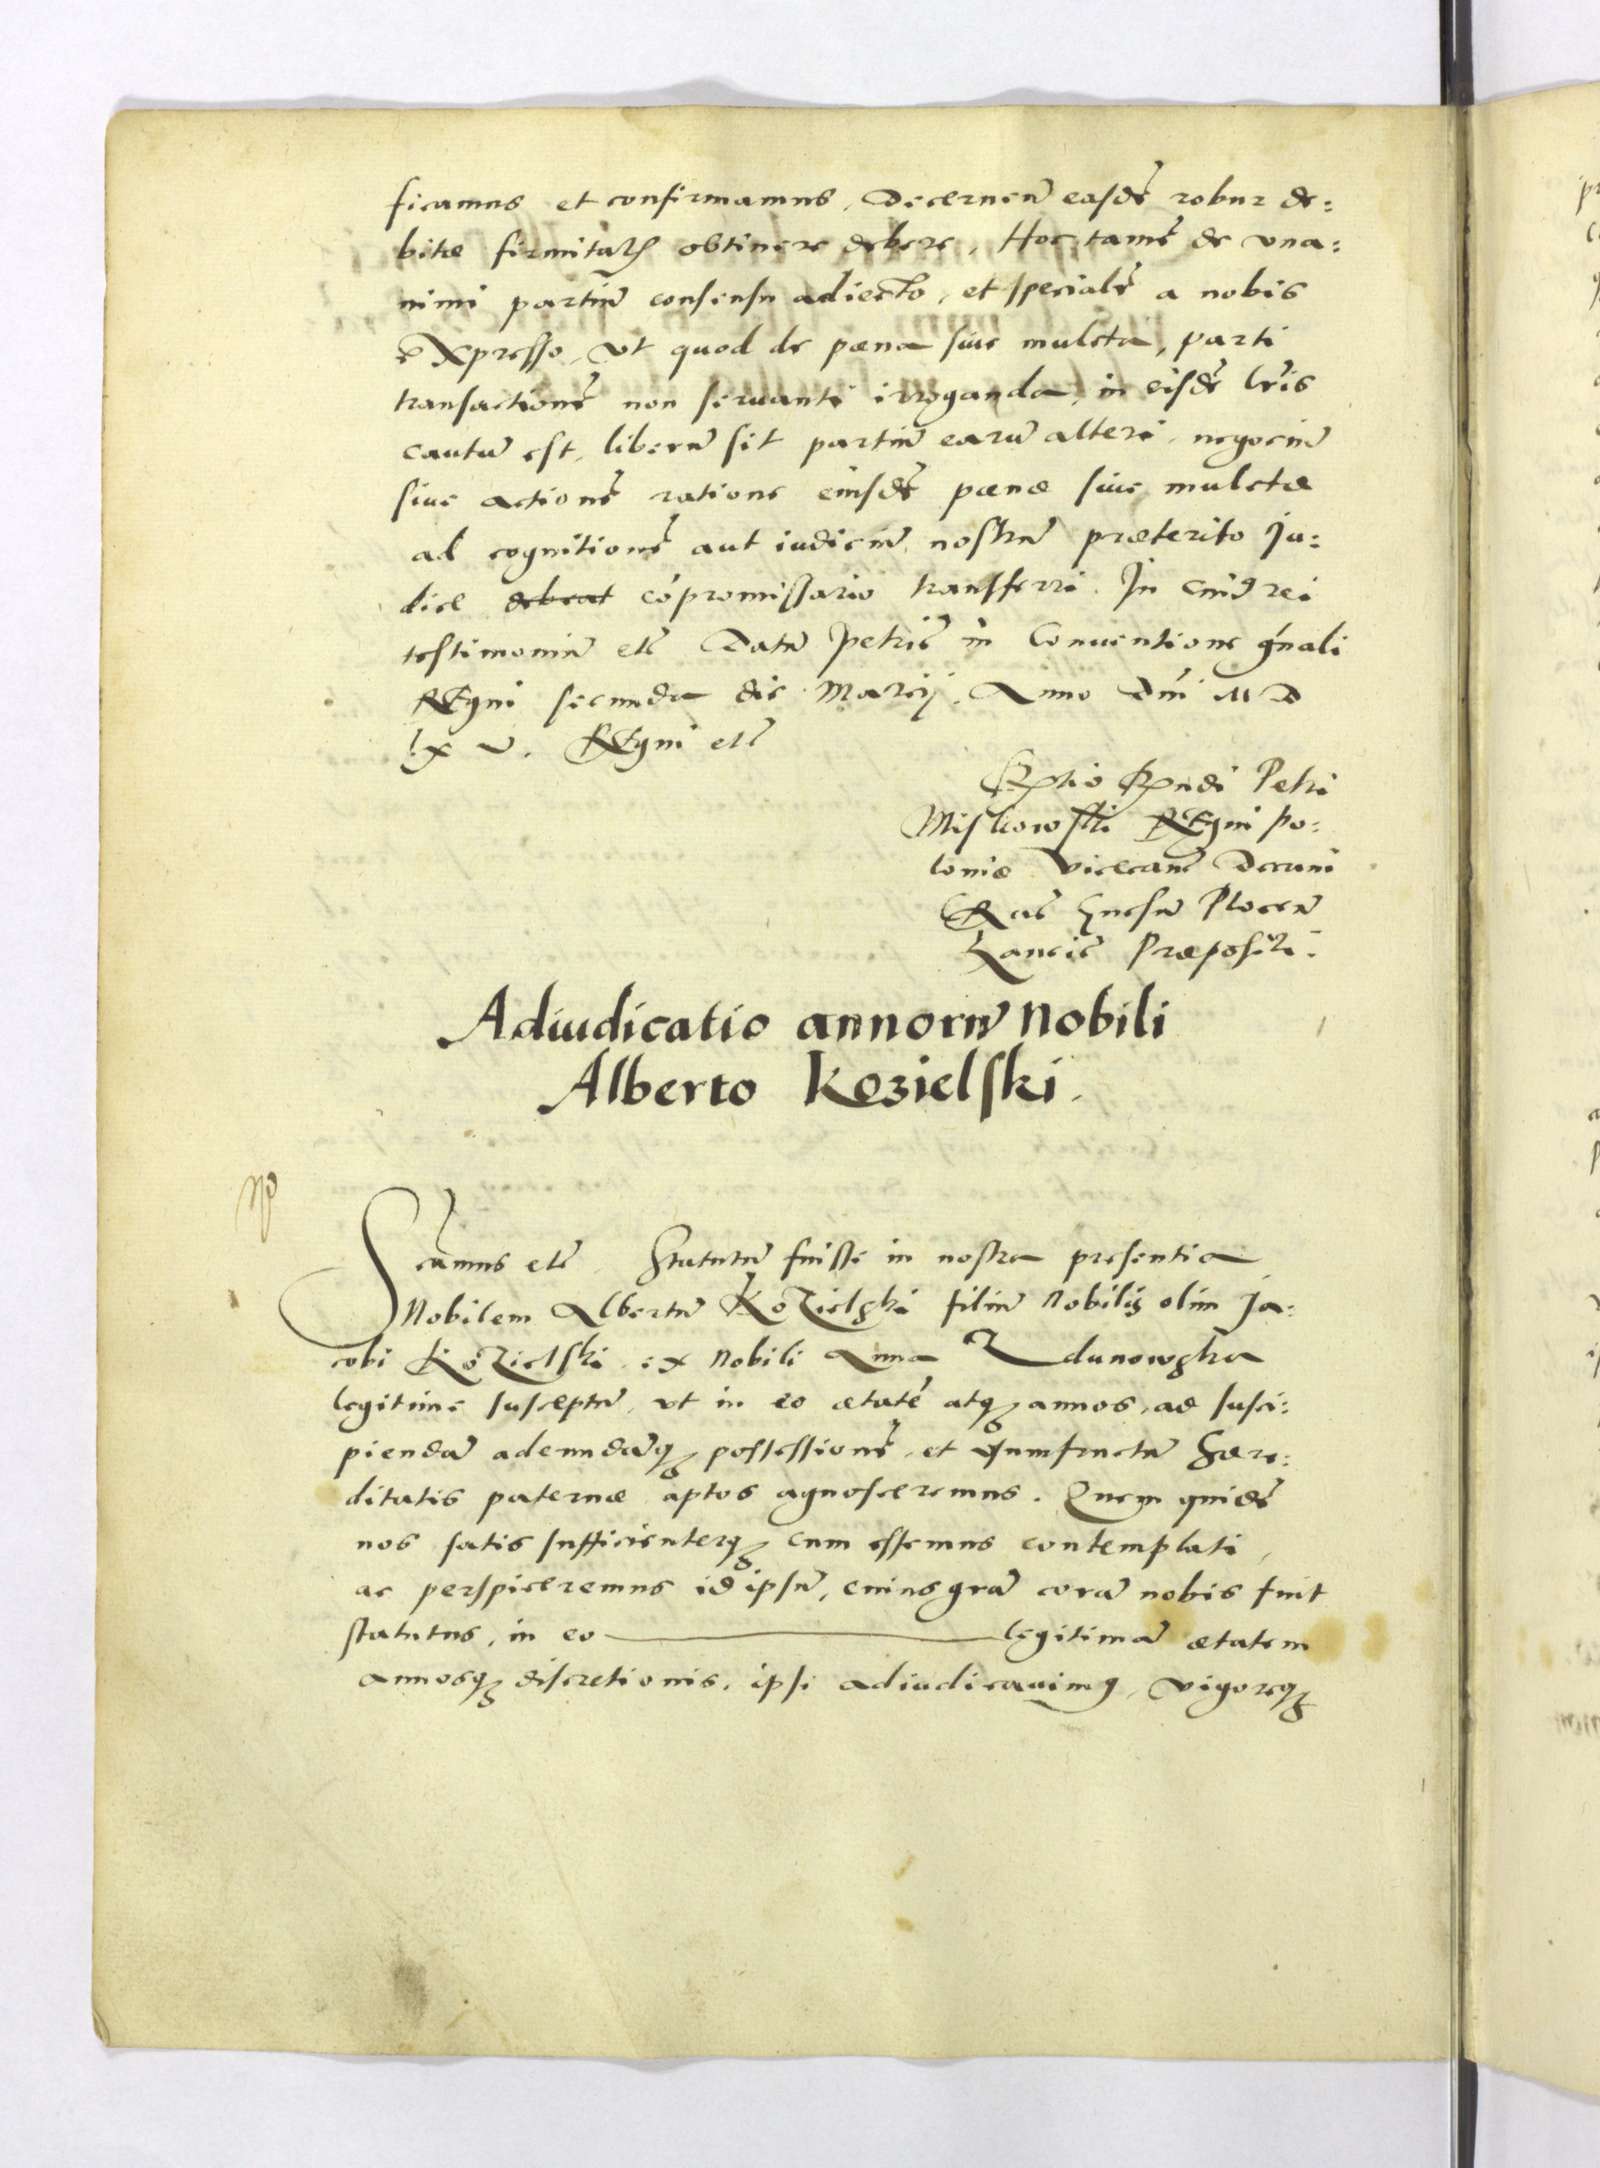 ficamus et confirmamus, Decernen̄ easdē robur de:
bitæ firmitatis obtinere debere. Hoc tamē de vna:
nimi partiū consensu adiecto, et specialē a nobis
expresso, vt quod de pœna siue mulcta, parti
transactionē non seruanti irroganda, in eisdē lr̄is
cautū est, liberū sit partiū earū alteri, negociū
siue actionē ratione eiusdē pœnæ siue mulctæ
ad cognitionē aut iudiciū nostrū præterito Ju:
dice debeat cōpromissario transferri. In cuius rei
testimoniū etc̄ Datū Petric̄ in Conuentione gn̄ali
Regni secunda die Marcij. Anno Dn̄i M D
lx v. Regni etc̄
Rl̄tio Rn̄di Petri
Miskowski Regni Po:
loniæ Vicecanc̄ Decani
Crac̄ Gnesn̄ Plocen̄
Lancic̄ Præpositi.
Adiudicatio annorū Nobili
Alberto Kozielski.
Sc̄amus etc̄. Statutū fuisse in nostra presentia
Nobilem Albertū Kozielski filiū Nobilis olim Ja:
cobi Kozielski ex Nobili Anna Zdunowska
legitime susceptū, vt in eo ætatē atq; annos, ad susci:
piendā adeundāq; possessionē, et vsumfructū Hære:
ditatis paternæ aptos agnosceremus. Quem quidē
nos satis sufficienterq; cum essemus contemplati,
ac perspiceremus id ipsū, cuius grā corā nobis fuit
statutus, in eo legitimā ætatem
annosq; discretionis, ipsi adiudicauimus, vigoreq;